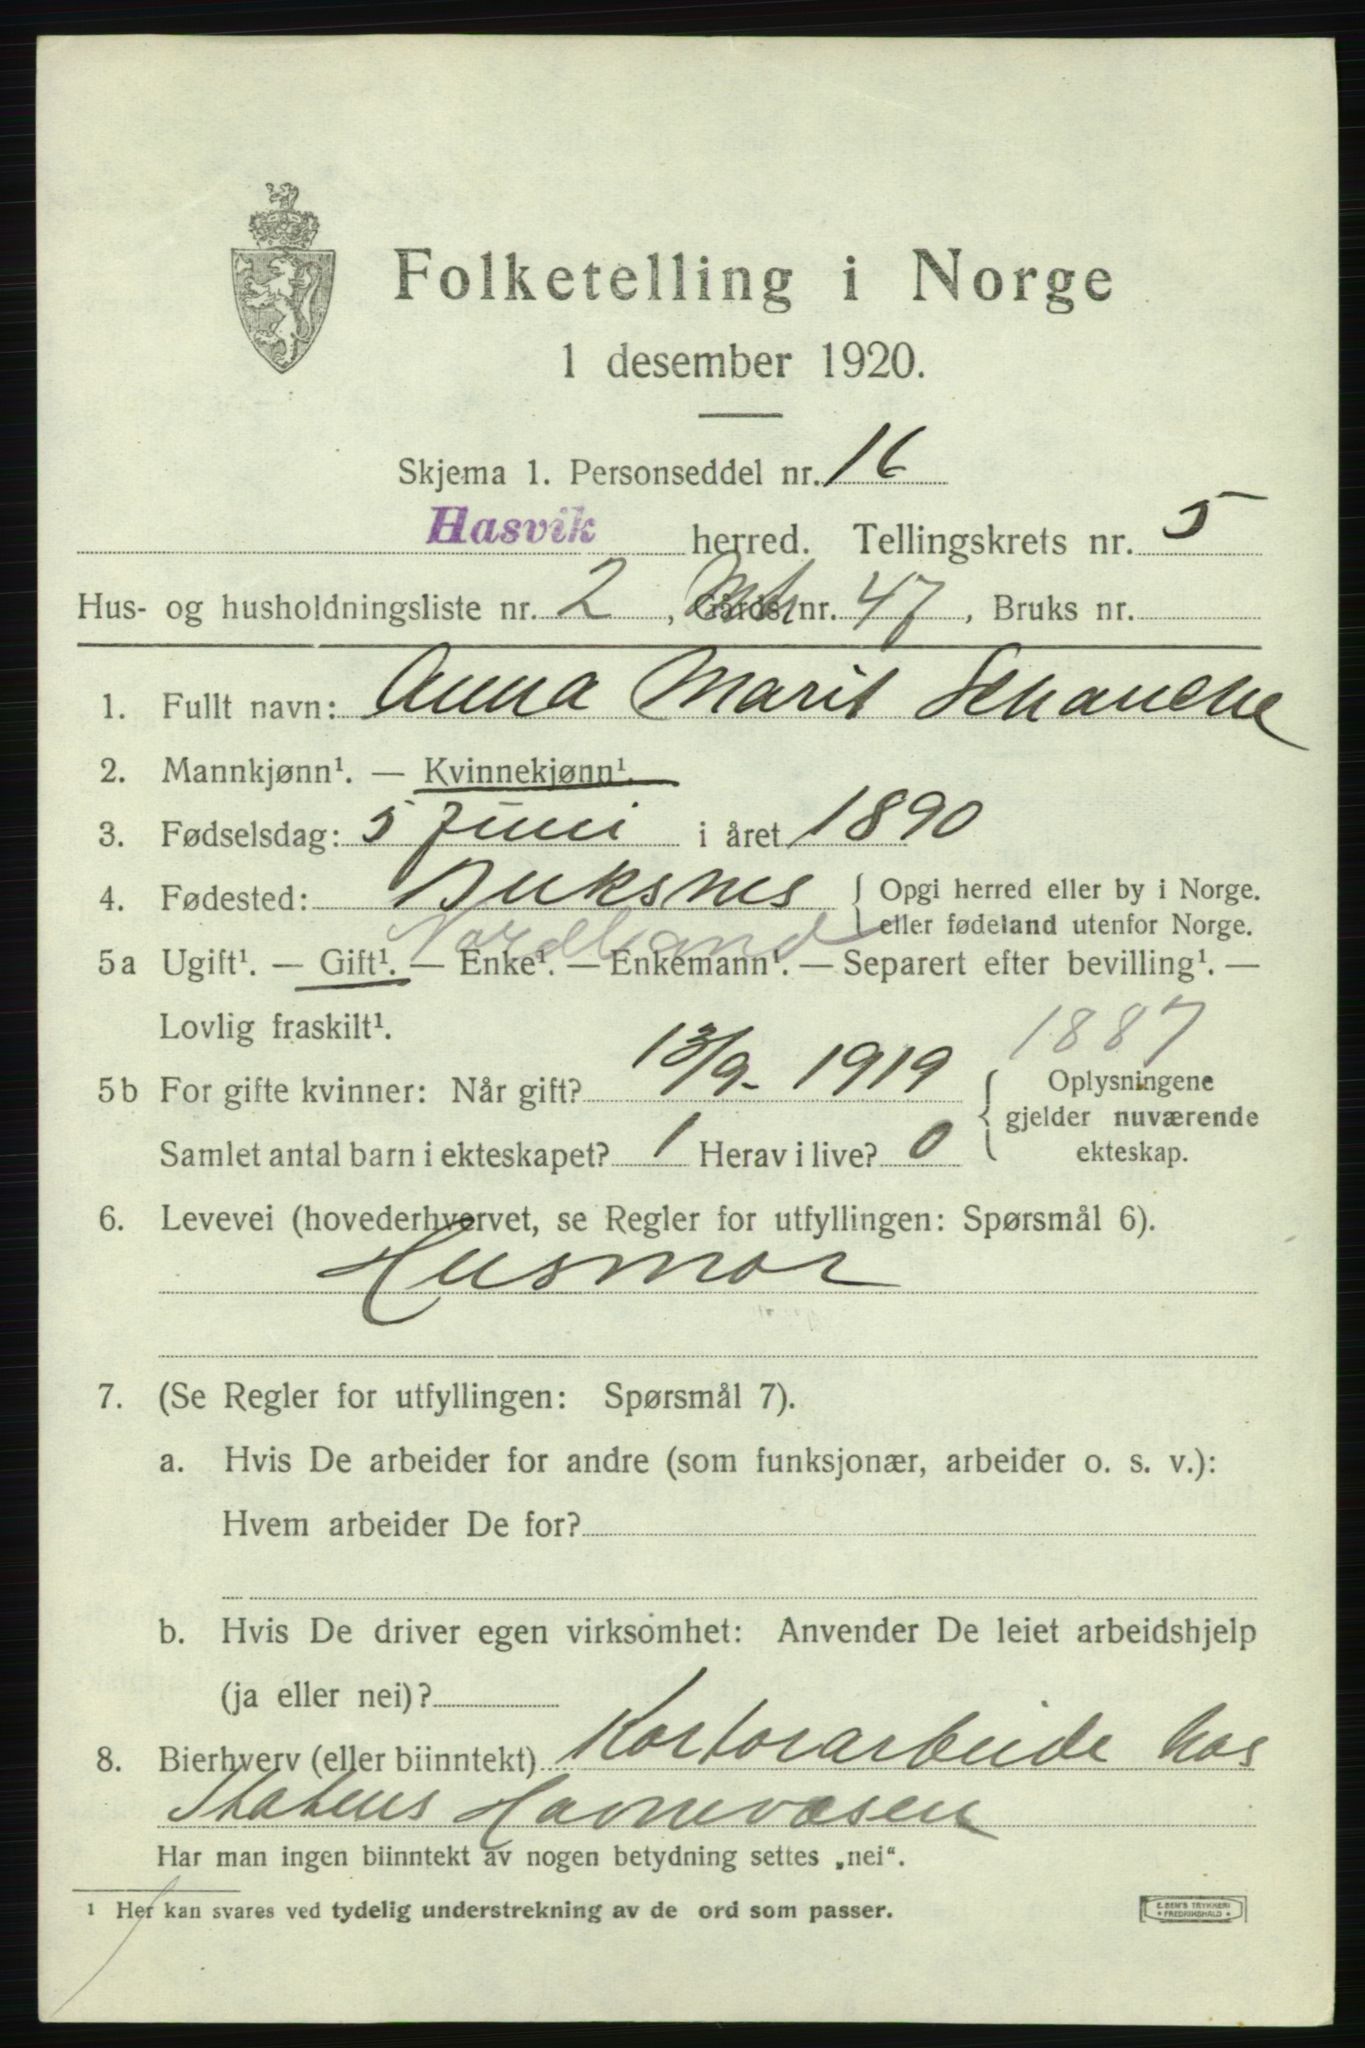 Folketelling i Norge
1 desember 1920.
Skjema 1. Personseddel nr. 16
Hasvik herred. Tellingskrets nr. 5
Hus- og husholdningsliste nr. 2, Gårds nr. 47, Bruks nr.
1. Fullt navn: Anna Marit Schanche
2. Mannkjønn¹. — Kvinnekjønn¹.
3. Fødselsdag: 5 Juni i året 1890
4. Fødested: Buksnes { Opgi herred eller by i Norge.
Nordland eller fødeland utenfor Norge.
5a Ugift¹. — Gift¹. — Enke¹. — Enkemann¹. — Separert efter bevilling¹. —
Lovlig fraskilt¹.
1887
5b For gifte kvinner: Når gift? 13/9- 1919 { Oplysningene
gjelder nuværende
Samlet antal barn i ekteskapet? 1 Herav i live? 0 ekteskap.
6. Levevei (hovederhvervet, se Regler for utfyllingen: Spørsmål 6).
Husmor
7. (Se Regler for utfyllingen: Spørsmål 7).
a. Hvis De arbeider for andre (som funksjonær, arbeider o. s. v.):
Hvem arbeider De for?
b. Hvis De driver egen virksomhet: Anvender De leiet arbeidshjelp
(ja eller nei)?
8. Bierhverv (eller biinntekt) Kontorarbeide hos
Statens Havnevæsen
Har man ingen biinntekt av nogen betydning settes „nei“.
¹ Her kan svares ved tydelig understrekning av de ord som passer.
E. SEM'S TRYKKERI
* FREDRIKSHALD *